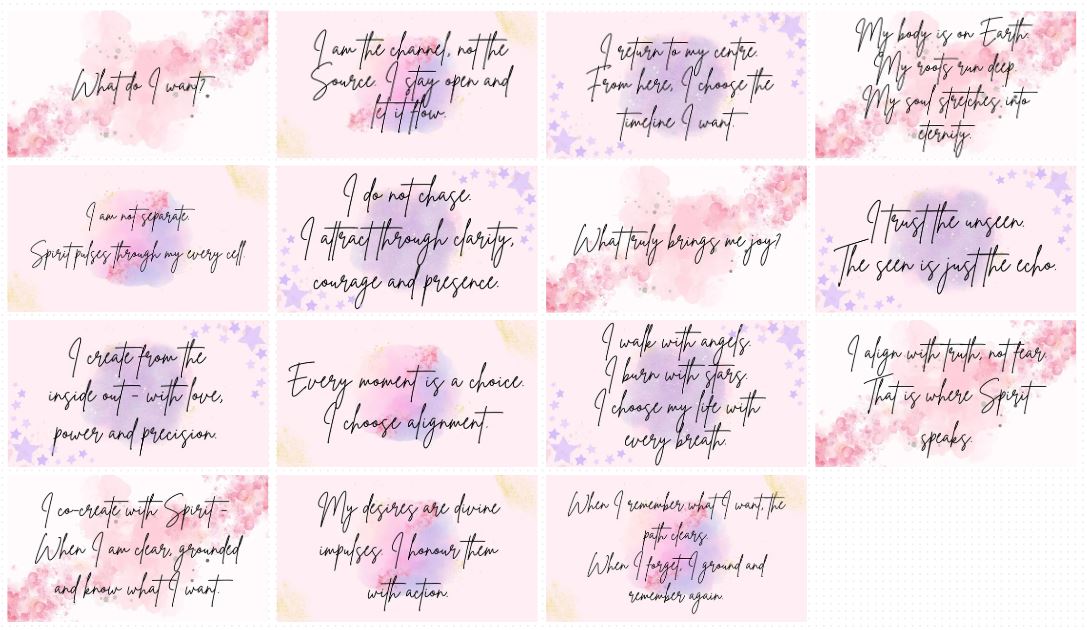 What do I want?
I am the channel, not the
Source. I stay open and
let it flow.
I return to my centre.
From here, I choose the
timeline I want.
My body is on Earth.
My roots run deep.
My soul stretches into
eternity.
I am not separate.
Spirit pulses through my every cell.
I do not chase.
I attract through clarity,
courage and presence.
What truly brings me joy?
I trust the unseen.
The seen is just the echo.
I create from the
inside out - with love,
power and precision.
Every moment is a choice.
I choose alignment.
I walk with angels.
I burn with stars.
I choose my life with
every breath.
I align with truth, not fear.
That is where Spirit
speaks.
I co-create with Spirit -
When I am clear, grounded
and know what I want.
My desires are divine
impulses. I honour them
with action.
When I remember what I want, the
path clears.
When I forget, I ground and
remember again.